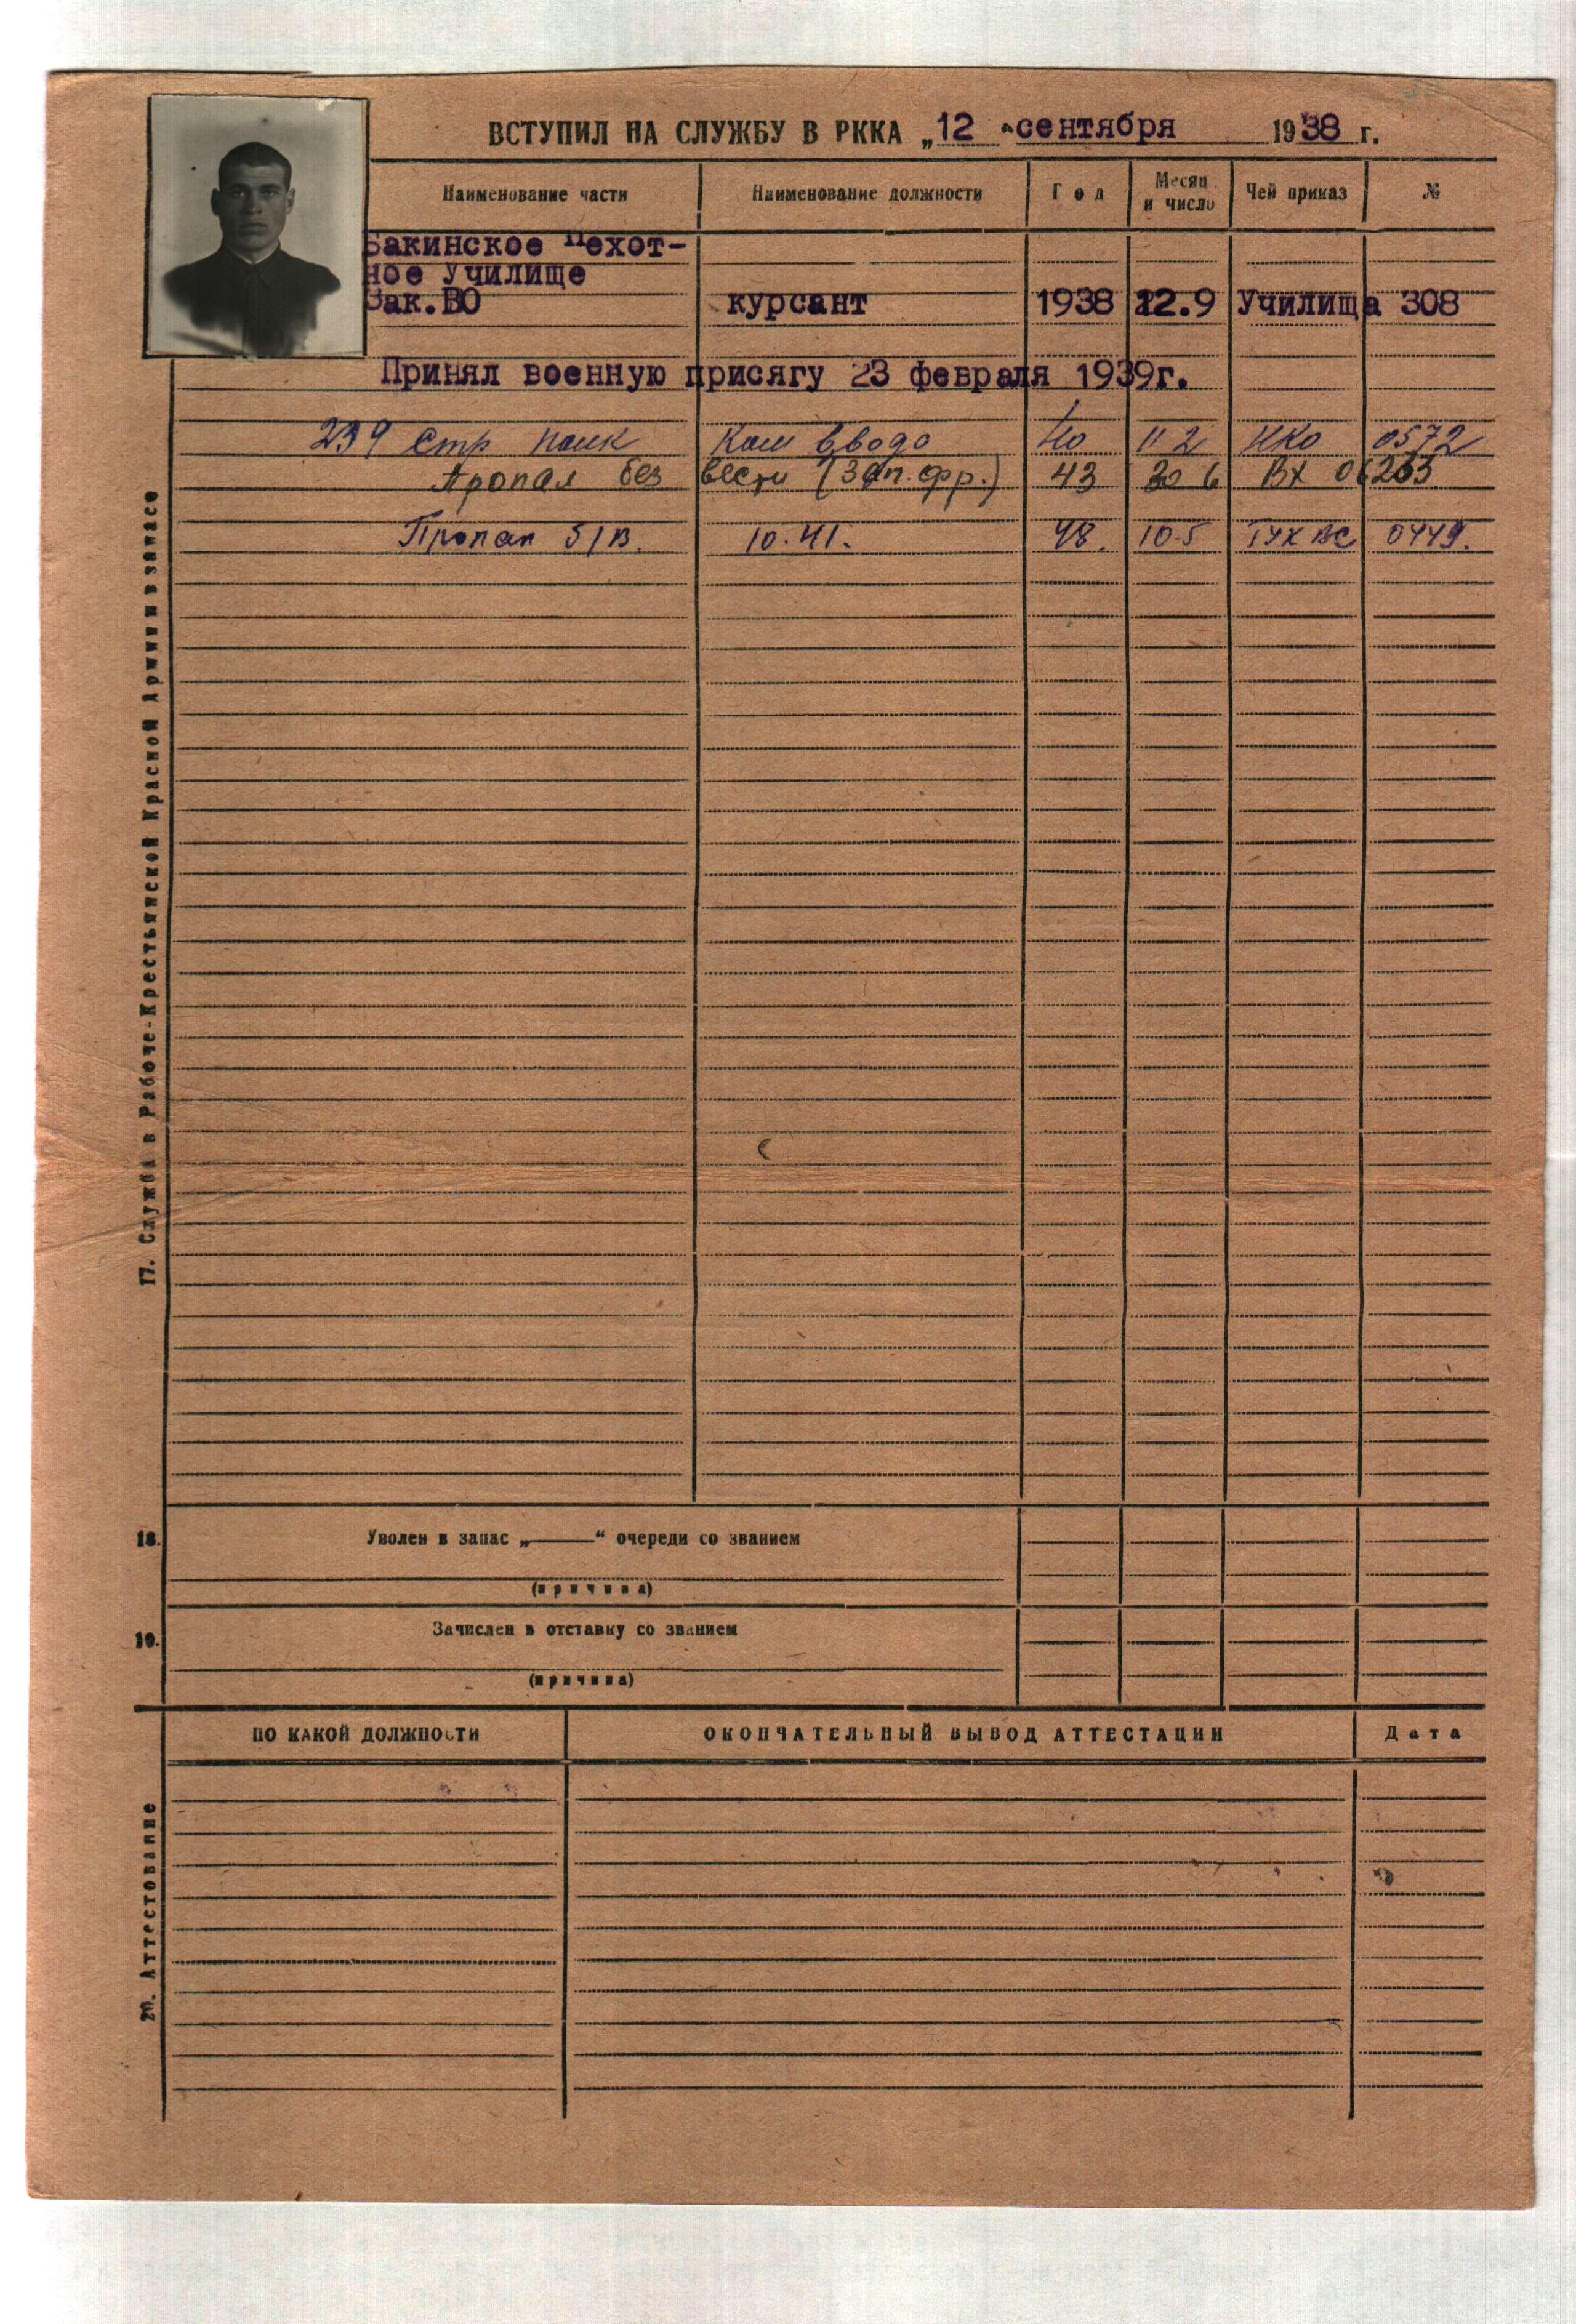 ВСТУПИЛ НА СЛУЖБУ В РККА „12" сентября 1938 г.
Наименование части Наименование должности Год Месяц и число Чей приказ №
Бакинское Пехот-
ное Училище
Зак.ВО курсант 1938 12.9 Училища 308
Принял военную присягу 23 февраля 1939г.
239 стр полк Ком взвода 40 11 2 НКО 0572
Пропал без вести (Зап. фр.) 43 30 6 Вх 06263
Пропал б/в. 10.41. 48. 10.5 ГУК ВС 0449.
17. Служба в Рабоче-Крестьянской Красной Армии и в запасе
18. Уволен в запас „——“ очереди со званием
(причина)
19. Зачислен в отставку со званием
(причина)
ПО КАКОЙ ДОЛЖНОСТИ ОКОНЧАТЕЛЬНЫЙ ВЫВОД АТТЕСТАЦИИ Дата
20. Аттестование